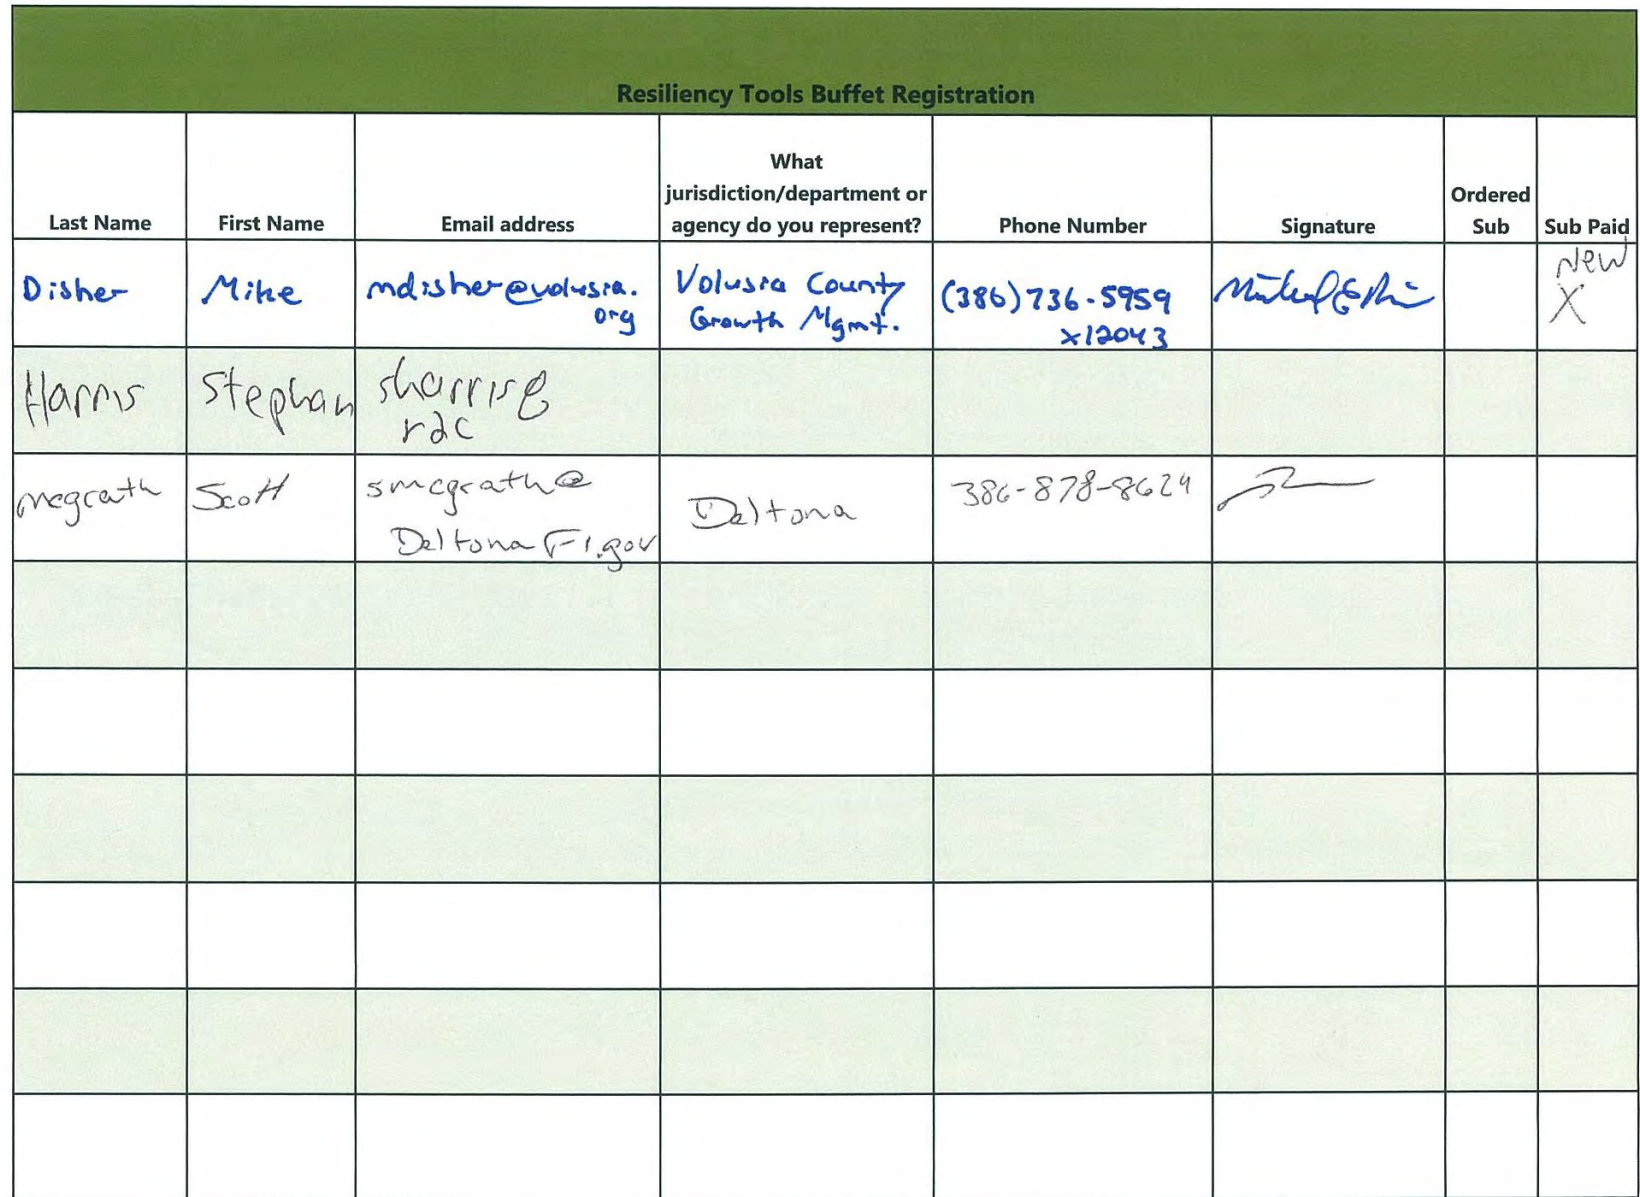 Resiliency Tools Buffet Registration
Last Name
First Name
Email address
What
jurisdiction/department or
agency do you represent?
Phone Number
Signature
Ordered
Sub
Sub Paid
Disher
Mike
mdisher@volusia.
org
Volusia County
Growth Mgmt.
(386)736-5959
x12043
New
X
Harris
Stephan
sharris@
r2c
mcgrath
Scott
smcgrath@
DeltonaFl.gov
Deltona
386-878-8624